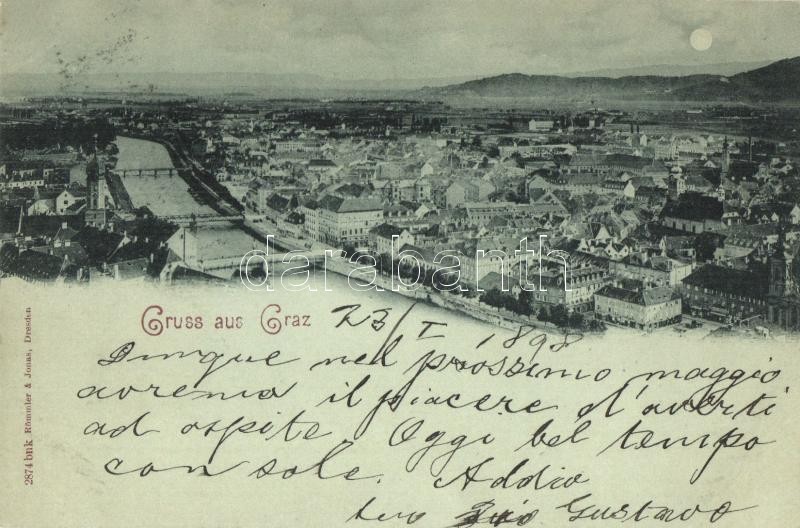 darabanth
Gruss aus Graz 23/I 1898
Dunque nel prossimo maggio
avremo il piacere d'averti
ad ospite. Oggi bel tempo
con sole. Addio
tuo Gustavo
2874 bnk Römmler & Jonas, Dresden